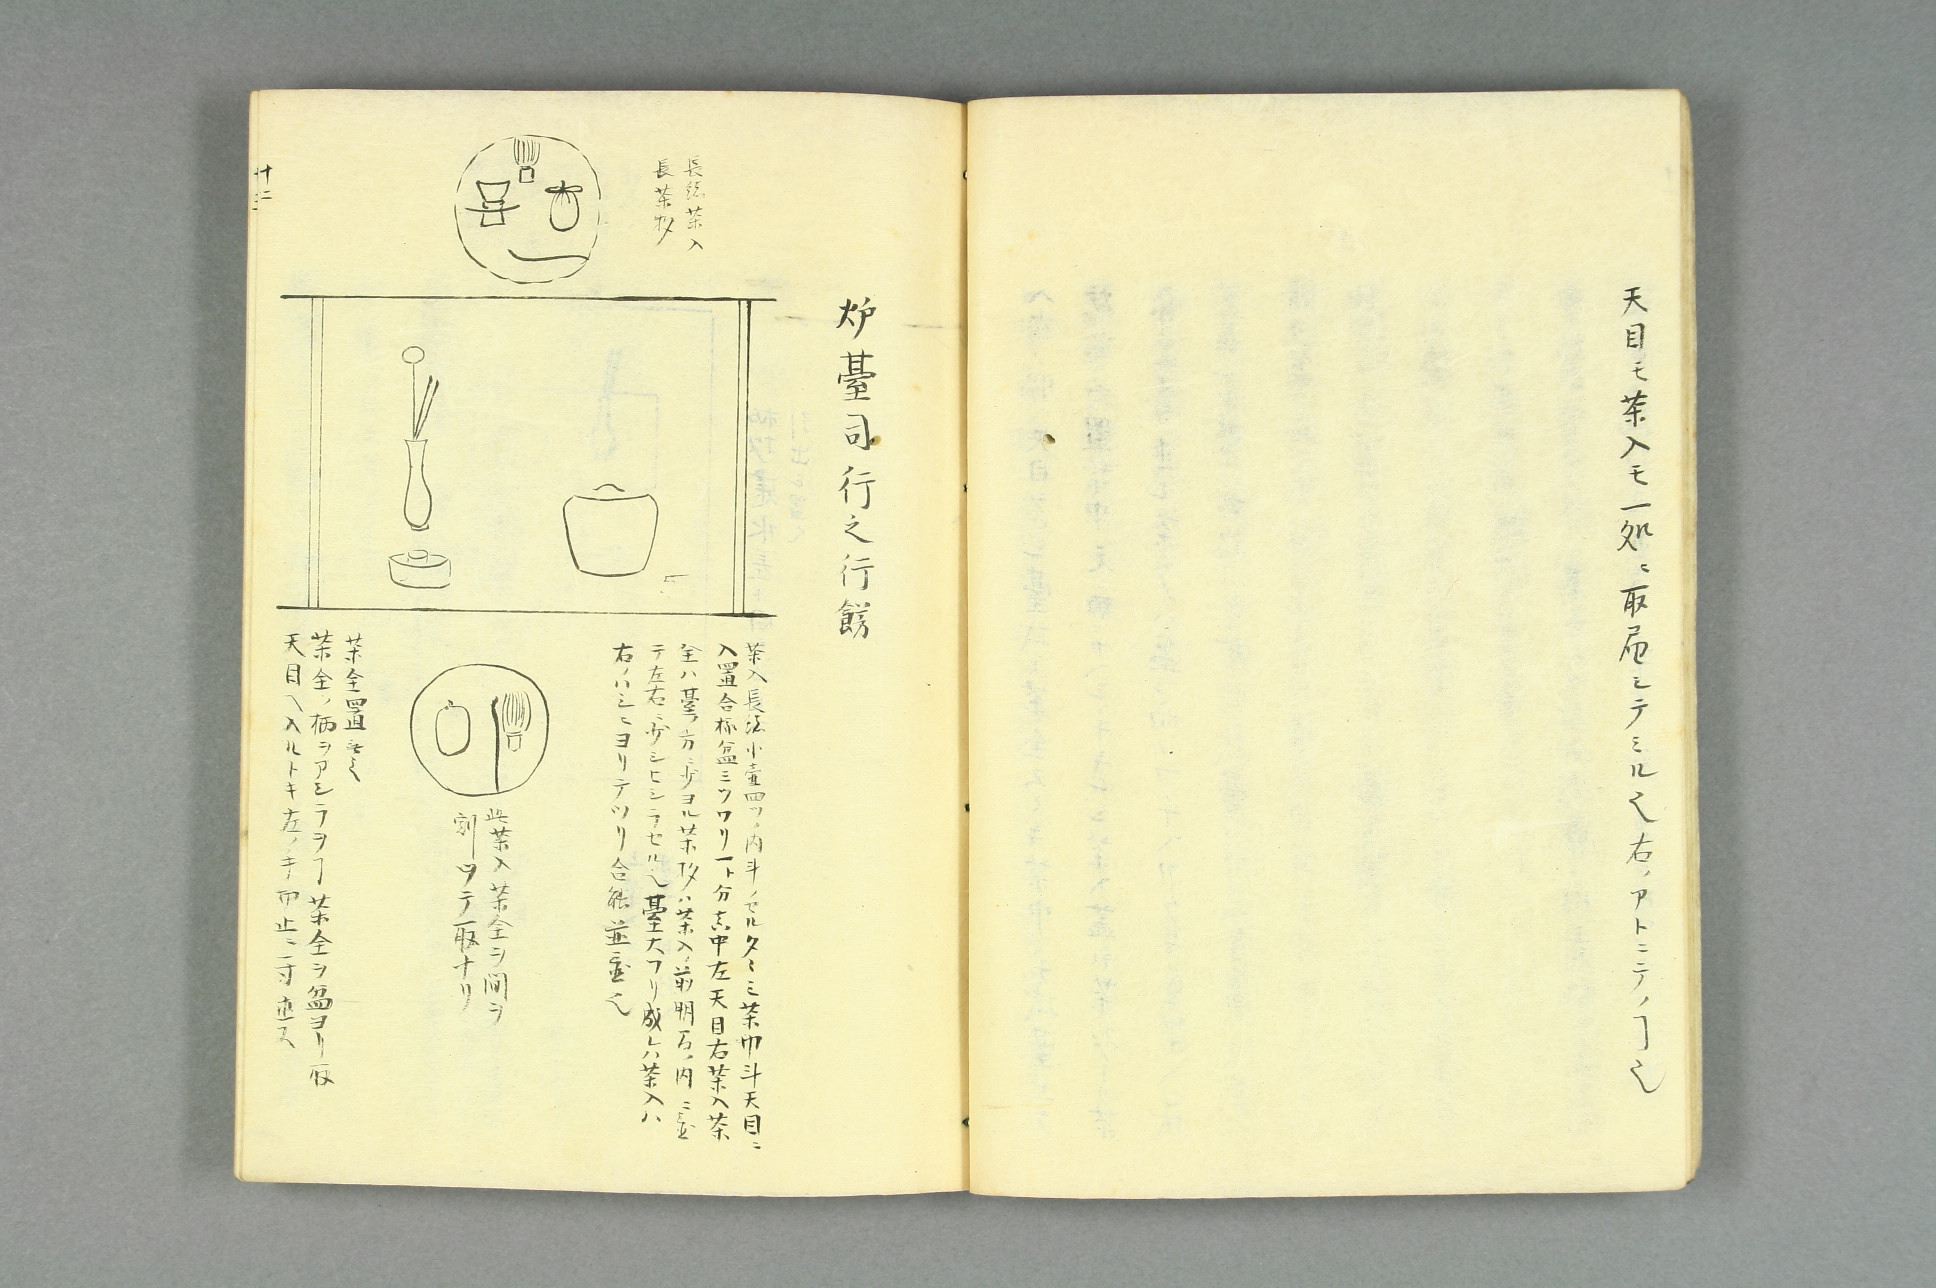 天目モ茶入モ一処ニ取扈シテミル也右ノアトニテノ𬼀也
炉臺司行之行餝
長緒茶入
長茶杓
茶入長緒小壷四ツノ内斗ノセルタヽミ茶巾斗天目ニ
入置合極盆ミツワリ一ト分真中左天目右茶入茶
全ハ臺ノ方ニ少ヨル茶杓ハ茶入ノ前明石ノ内ニ置
テ左右ニ少シヒシラセル也臺大フリ成ルハ茶入ハ
右ノハシニヨリテツリ合能並置也
此茶入茶全ヲ間ヲ
割ツテ取ナリ
茶全置無之
茶全ノ柄ヲアシラヲ𬼀茶全ヲ盆ヨリ取
天目ヘ入ルトキ左ノ手而止ニ寸直ス
十二